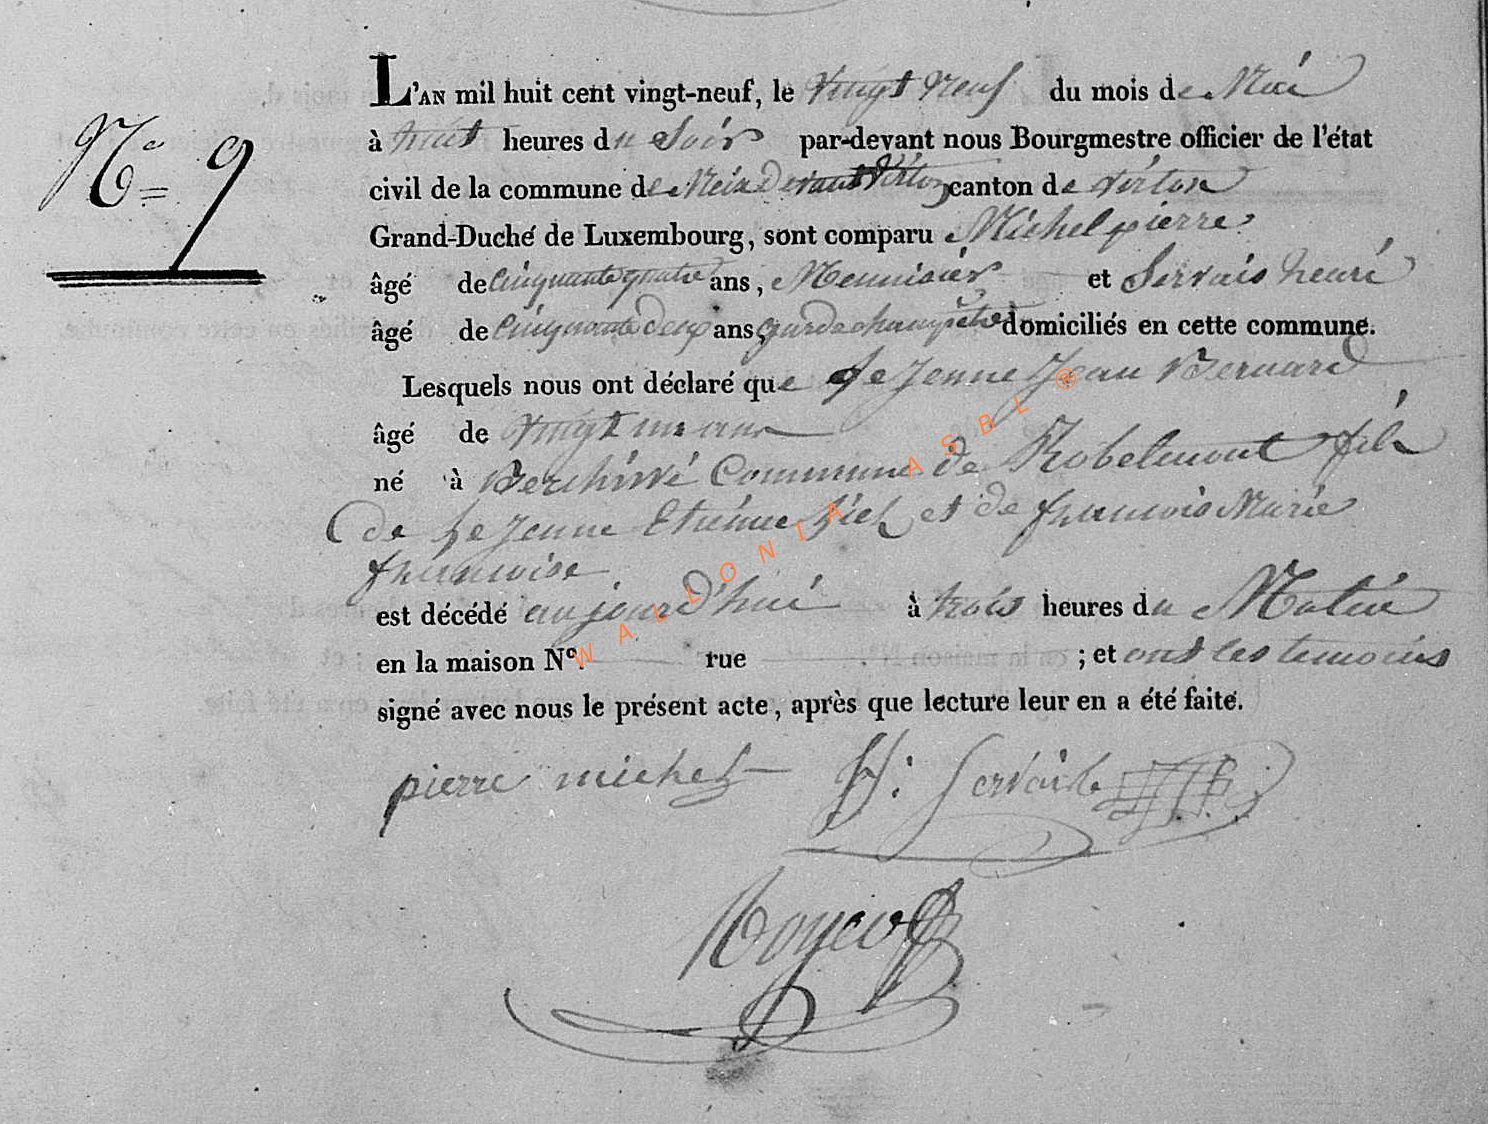 N.º 9
L'AN mil huit cent vingt-neuf, le vingt neuf du mois de Mai
à huit heures du soir par-devant nous Bourgmestre officier de l'état
civil de la commune de Meix Devant Virton canton de virton
Grand-Duché de Luxembourg, sont comparu Michel pierre
âgé de cinquante quatre ans, Meunier et Servais henri
âgé de cinquante deux ans, garde champêtre domiciliés en cette commune.
Lesquels nous ont déclaré que Le Jeune Jean Bernard
âgé de vingt un ans
né à Berchivé Commune de Robelmont fils
de Le Jeune Etienne et de francois Marie
francoise
est décédé aujourd'hui à trois heures du Matin
en la maison Nº. rue ; et ont les temoins
signé avec nous le présent acte, après que lecture leur en a été faite.
pierre michel H: Servais
WALLONIA ASBL ®